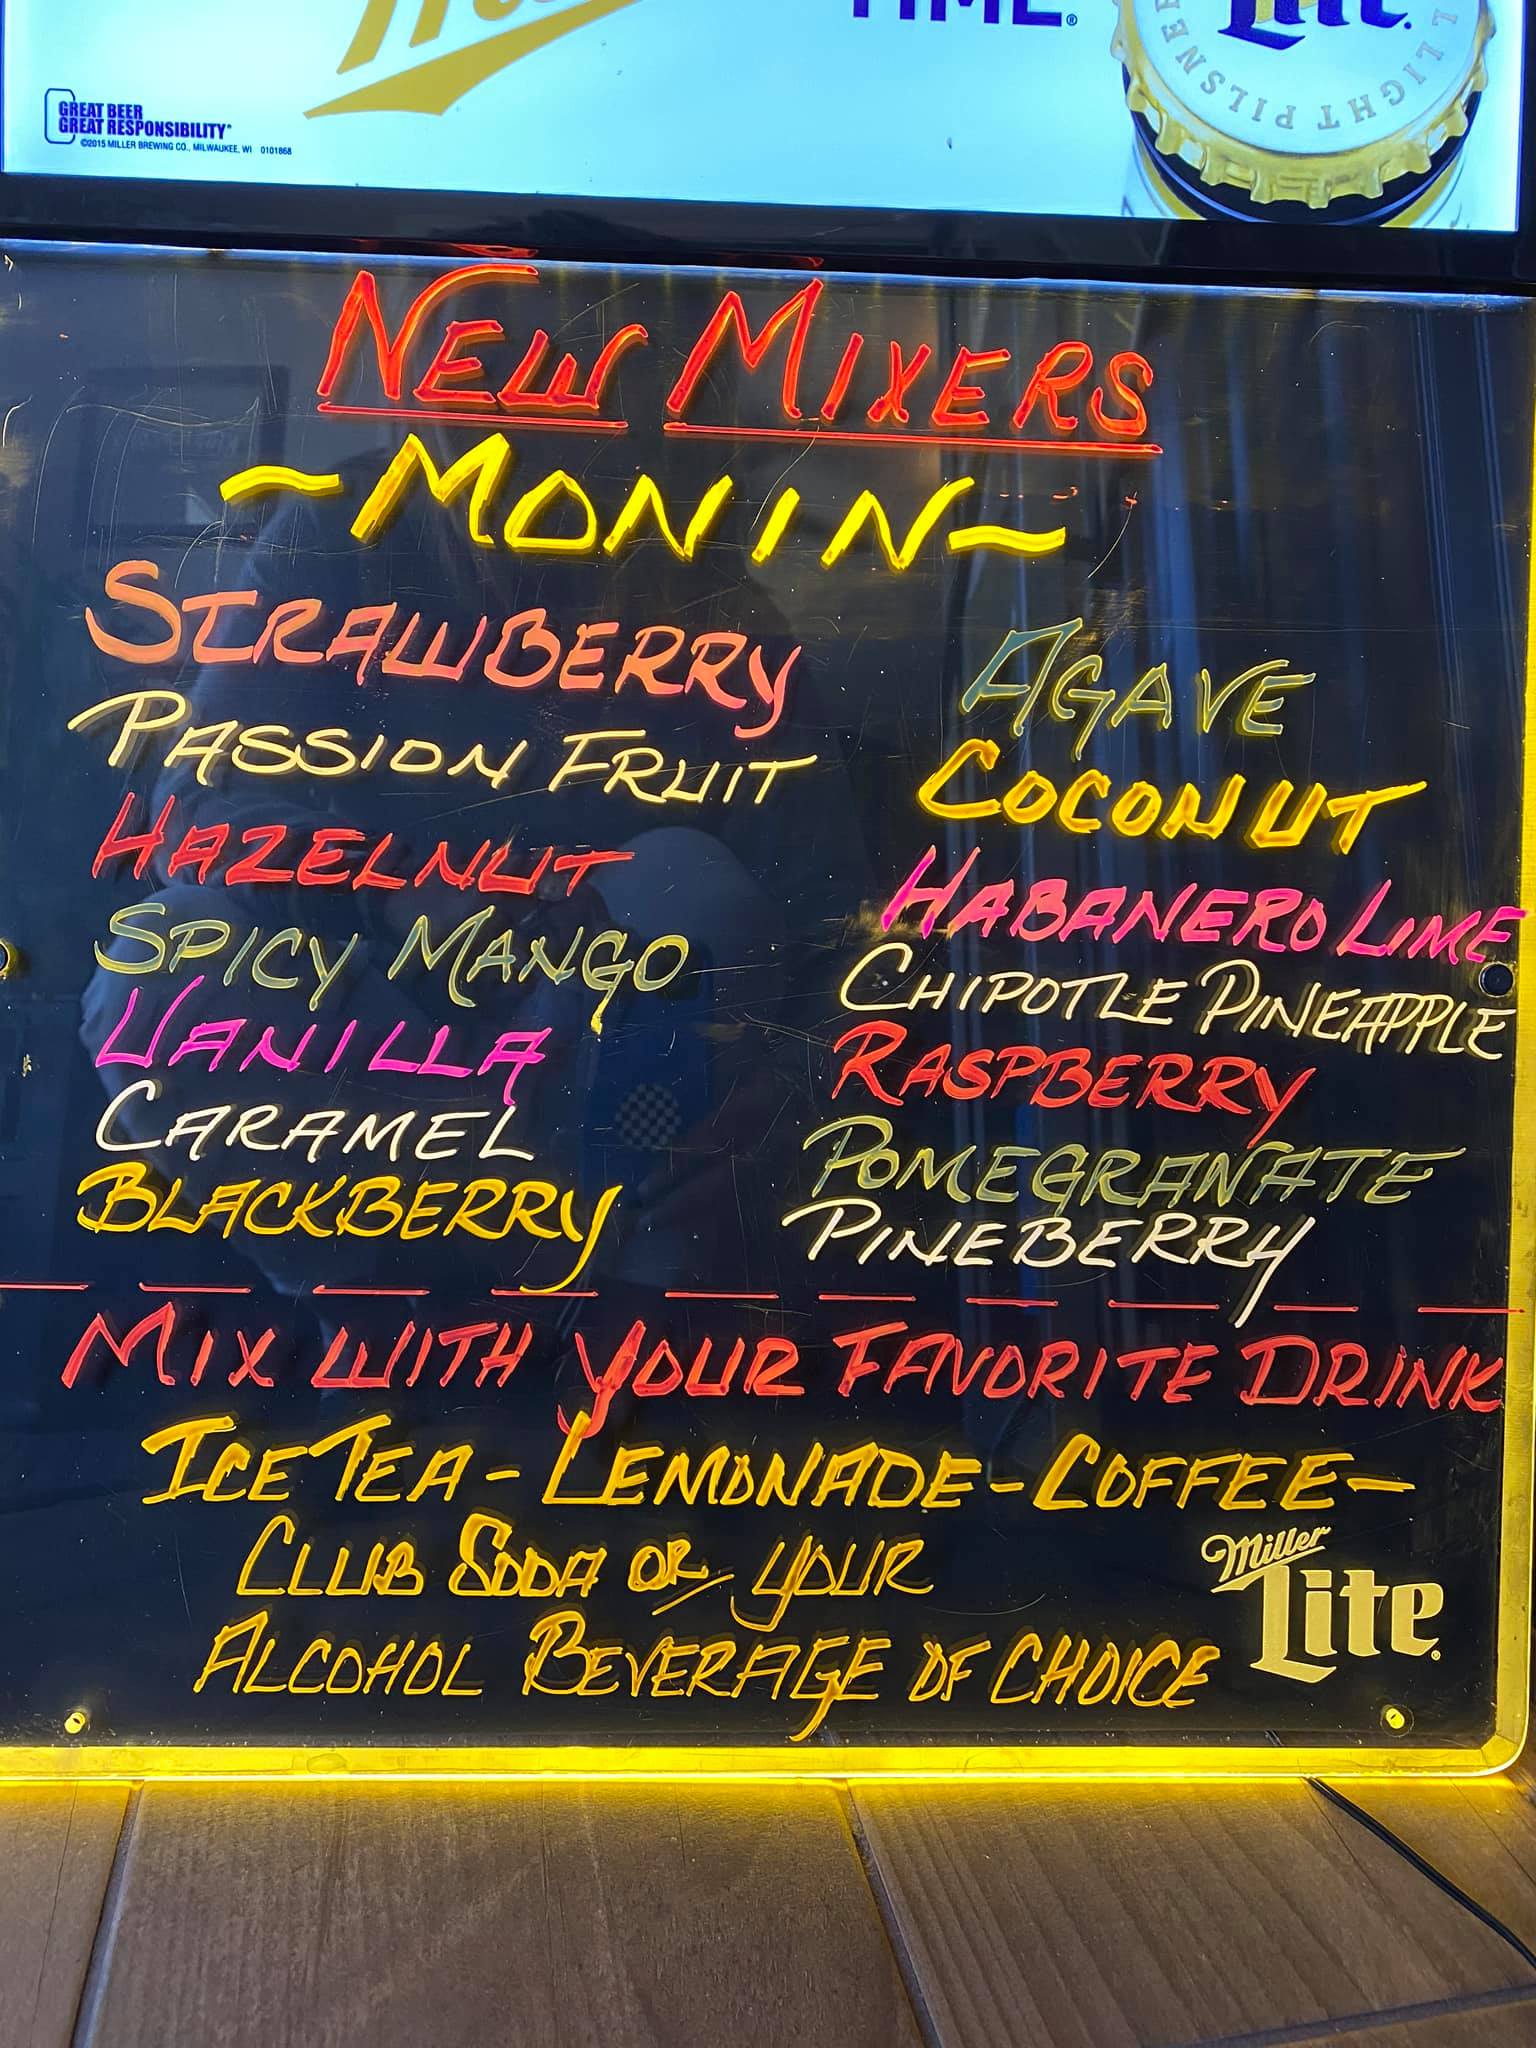 TIME.®
Lite.
L LIGHT PILSNE
GREAT BEER
GREAT RESPONSIBILITY®
©2015 MILLER BREWING CO., MILWAUKEE, WI 0101868
NEW MIXERS
~MONIN~
STRAWBERRY
PASSION FRUIT
HAZELNUT
SPICY MANGO
VANILLA
CARAMEL
BLACKBERRY
AGAVE
COCONUT
HABANERO LIME
CHIPOTLE PINEAPPLE
RASPBERRY
POMEGRANATE
PINEBERRY
MIX WITH YOUR FAVORITE DRINK
ICE TEA - LEMONADE - COFFEE -
CLUB SODA OR YOUR
ALCOHOL BEVERAGE OF CHOICE
Miller
Lite®